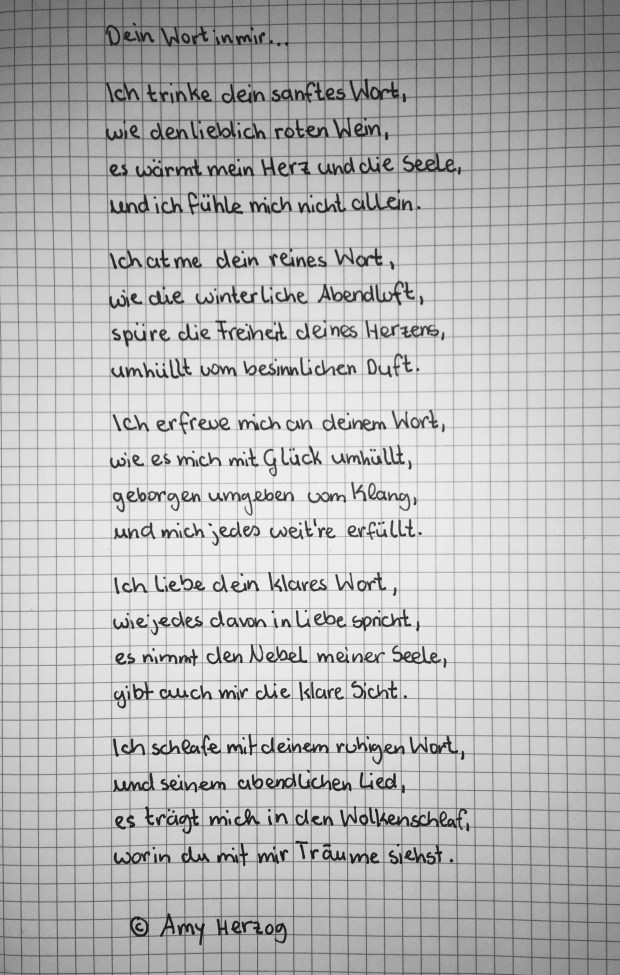 Dein Wort in mir...
Ich trinke dein sanftes Wort,
wie den lieblich roten Wein,
es wärmt mein Herz und die Seele,
und ich fühle mich nicht allein.
Ich atme dein reines Wort,
wie die winterliche Abendluft,
spüre die Freiheit deines Herzens,
umhüllt vom besinnlichen Duft.
Ich erfreue mich an deinem Wort,
wie es mich mit Glück umhüllt,
geborgen umgeben vom Klang,
und mich jedes weit're erfüllt.
Ich liebe dein klares Wort,
wie jedes davon in Liebe spricht,
es nimmt den Nebel meiner Seele,
gibt auch mir die klare Sicht.
Ich schlafe mit deinem ruhigen Wort,
und seinem abendlichen Lied,
es trägt mich in den Wolkenschlaf,
worin du mit mir Träume siehst.
© Amy Herzog